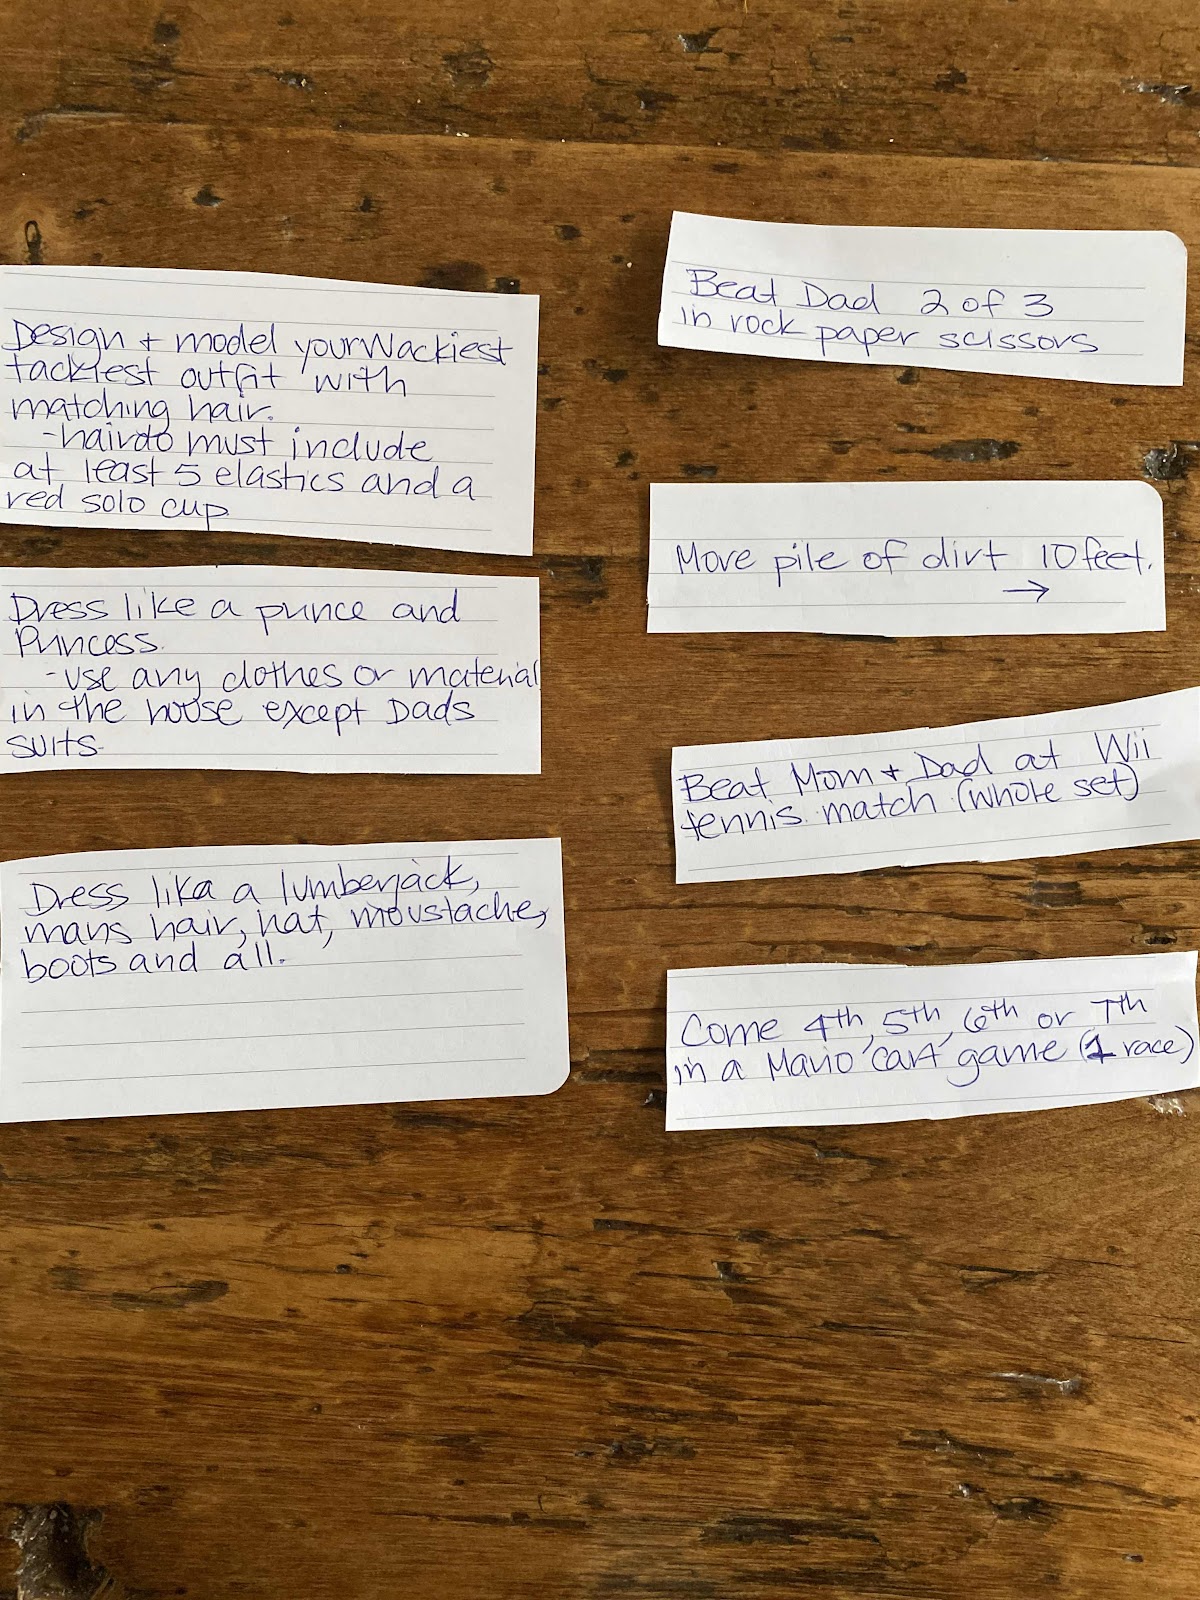 Design + model your Wackiest
tackiest outfit with
matching hair.
-hairdo must include
at least 5 elastics and a
red solo cup
Dress like a prince and
Princess.
-use any clothes or material
in the house except Dads
suits.
Dress like a lumberjack,
mans hair, hat, moustache,
boots and all.
Beat Dad 2 of 3
in rock paper scissors
Move pile of dirt 10 feet.
→
Beat Mom + Dad at Wii
tennis match (whole set)
Come 4th, 5th, 6th or 7th
in a Mario 'cart' game (1 race)